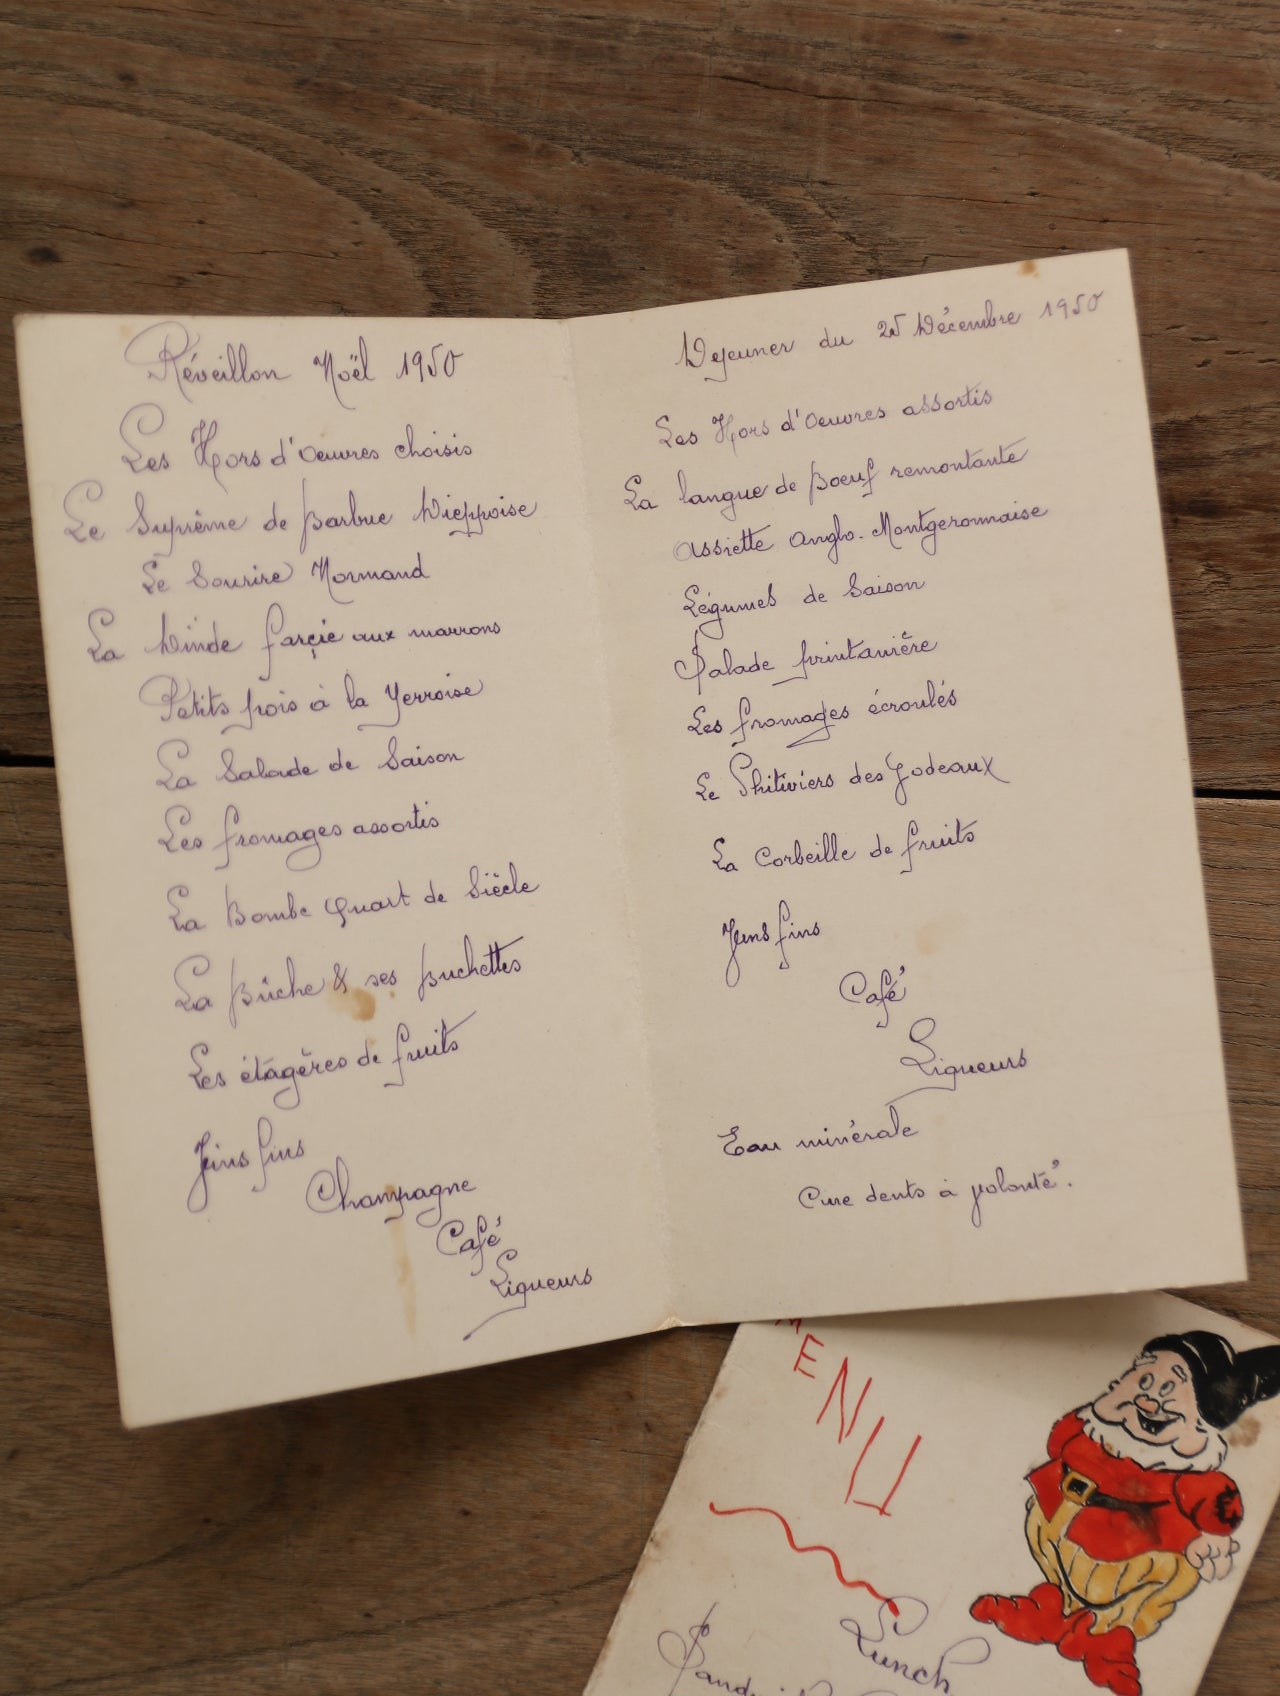 Réveillon Noël 1950
Les Hors d'Oeuvres choisis
Le Suprême de Barbue Dieppoise
Le Sourire Normand
La Dinde farçie aux marrons
Petits pois à la Yerroise
La Salade de Saison
Les fromages assortis
La Bombe Quart de Siècle
La Bûche & ses Buchettes
Les étagères de fruits
Vins fins
Champagne
Café
Liqueurs
Dejeuner du 25 Décembre 1950
Les Hors d'Oeuvres assortis
La langue de Boeuf remontante
Assiette Anglo-Montgeronnaise
Légumes de Saison
Salade printanière
Les fromages écroulés
Le Phitiviers des Godeaux
La Corbeille de fruits
Vins fins
Café
Liqueurs
Eau minérale
Cure dents à volonté.
MENU
Lunch